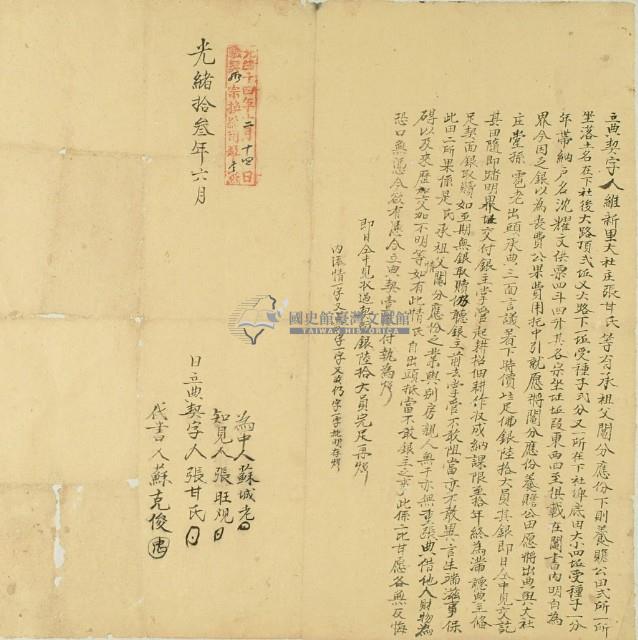 立典契字人維新里大社庄張甘氏等有承祖父鬮分應份下則養贍公田式所一所
坐落土名在下社後大路頂式坵又大路下一坵受種子弍分又一所在下社埤底田大小四坵受種子一分
年帶納戶名沈耀文供票四斗四升其各宗坐址坵段東西四至俱載在鬮書內明白為
界今因乏銀以為喪費公業費用托中引就愿將鬮分應份養贍公田愿將出典與大社
庄堂孫電老出頭承典三面言議着下時價六足佛銀陸拾大員其銀即日仝中見交訖
其田隨即踏明界址交付銀主掌管起耕招佃耕作收成納課限至拾年終為滿聽典主備
足契面銀取贖如至期無銀取贖仍聽銀主前去掌管不敢阻當亦不敢異言生端滋事保
此田二所果係是氏承祖父鬮分應份之業與別房親人無干亦無重張典借他人財物為
碍以及來歷交加不明等情如有此情氏自出頭抵當不干銀主之事此係二比甘愿各無反悔
恐口無憑今欲有憑今立典契壹紙付執為炤
即日仝中見收過契面銀陸拾大員完足再炤
內添情一字又
為中人蘇城老
知見人張旺观
日立典契字人張甘氏
代書人蘇克俊
光緒拾叁年六月
光緒十四年二月十四日
國史館臺灣文獻館
TAIWAN HISTORICA